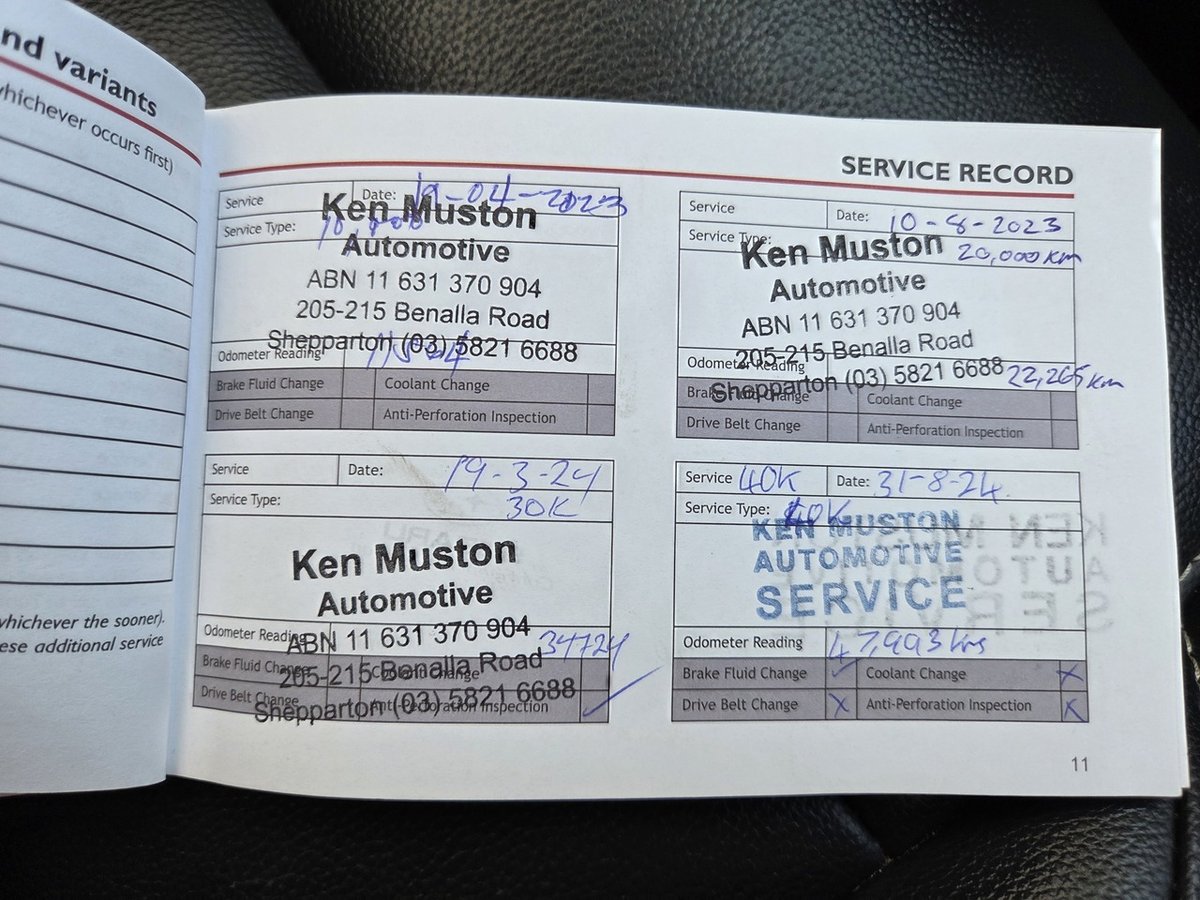 nd variants
whichever occurs first)
whichever the sooner).
ese additional service
SERVICE RECORD
Service Date: 19-04-2023
Service Type: 10,000
Ken Muston
Automotive
ABN 11 631 370 904
205-215 Benalla Road
Shepparton (03) 5821 6688
Odometer Reading
Brake Fluid Change Coolant Change
Drive Belt Change Anti-Perforation Inspection
Service Date: 10-8-2023
Service Type: 20,000 km
Ken Muston
Automotive
ABN 11 631 370 904
205-215 Benalla Road
Shepparton (03) 5821 6688
Odometer Reading 22,265 km
Brake Fluid Change Coolant Change
Drive Belt Change Anti-Perforation Inspection
Service Date: 19-3-24
Service Type: 30K
Ken Muston
Automotive
ABN 11 631 370 904
205-215 Benalla Road
Shepparton (03) 5821 6688
Odometer Reading 34724
Brake Fluid Change Coolant Change
Drive Belt Change Anti-Perforation Inspection
Service 40K Date: 31-8-24.
Service Type: 40K
KEN MUSTON
AUTOMOTIVE
SERVICE
Odometer Reading 47,993 kms
Brake Fluid Change Coolant Change
Drive Belt Change Anti-Perforation Inspection
11